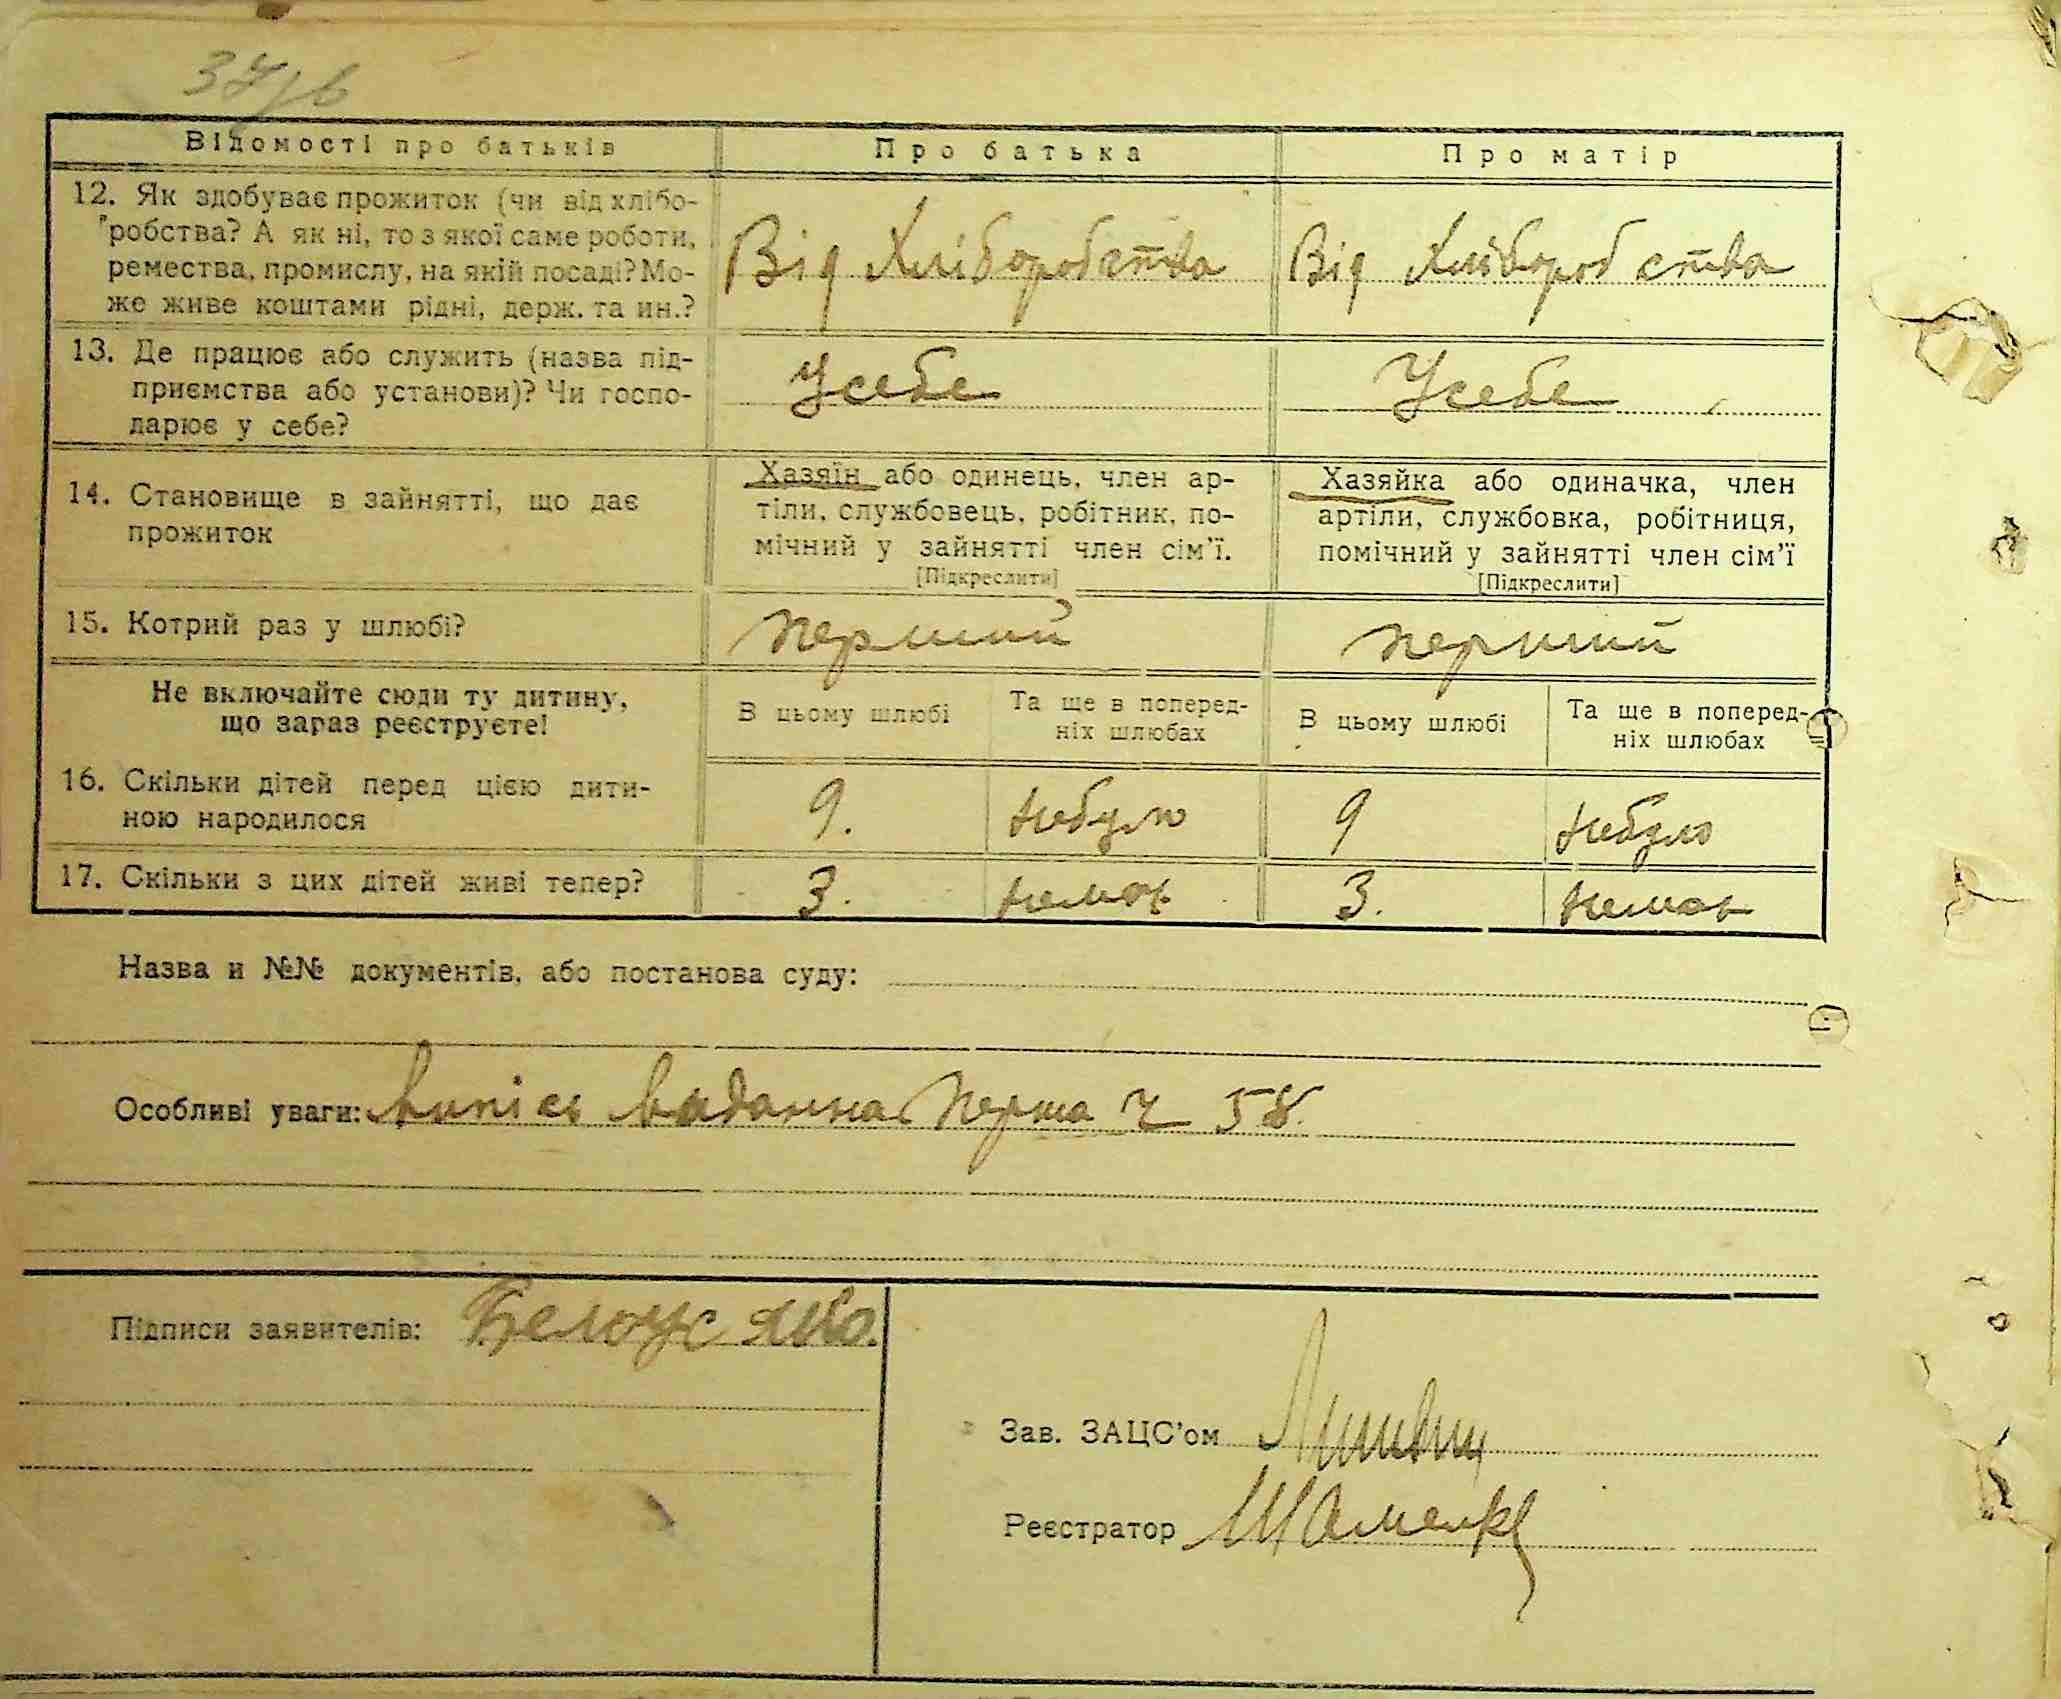 37/в
Відомості про батьків
Про батька
Про матір
12. Як здобуває прожиток (чи від хлібо-
робства? А як ні, то з якої саме роботи,
ремества, промислу, на якій посаді? Мо-
же живе коштами рідні, держ. та ин.?
Від Хліборобства
Від Хліборобства
13. Де працює або служить (назва під-
приємства або установи)? Чи госпо-
дарює у себе?
Усебе
Усебе
14. Становище в зайнятті, що дає
прожиток
Хазяїн або одинець, член ар-
тіли, службовець, робітник, по-
мічний у зайнятті член сім'ї.
[Підкреслити]
Хазяйка або одиначка, член
артіли, службовка, робітниця,
помічний у зайнятті член сім'ї
[Підкреслити]
15. Котрий раз у шлюбі?
перший
перший
Не включайте сюди ту дитину,
що зараз реєструєте!
В цьому шлюбі
Та ще в поперед-
ніх шлюбах
В цьому шлюбі
Та ще в поперед-
ніх шлюбах
16. Скільки дітей перед цією дити-
ною народилося
9.
небуло
9
небуло
17. Скільки з цих дітей живі тепер?
3.
немає
3.
немає
Назва и №№ документів, або постанова суду:
Особливі уваги: Випісь виданна перша ч 58.
Підписи заявителів: Белоус
Зав. ЗАЦС'ом
Реєстратор